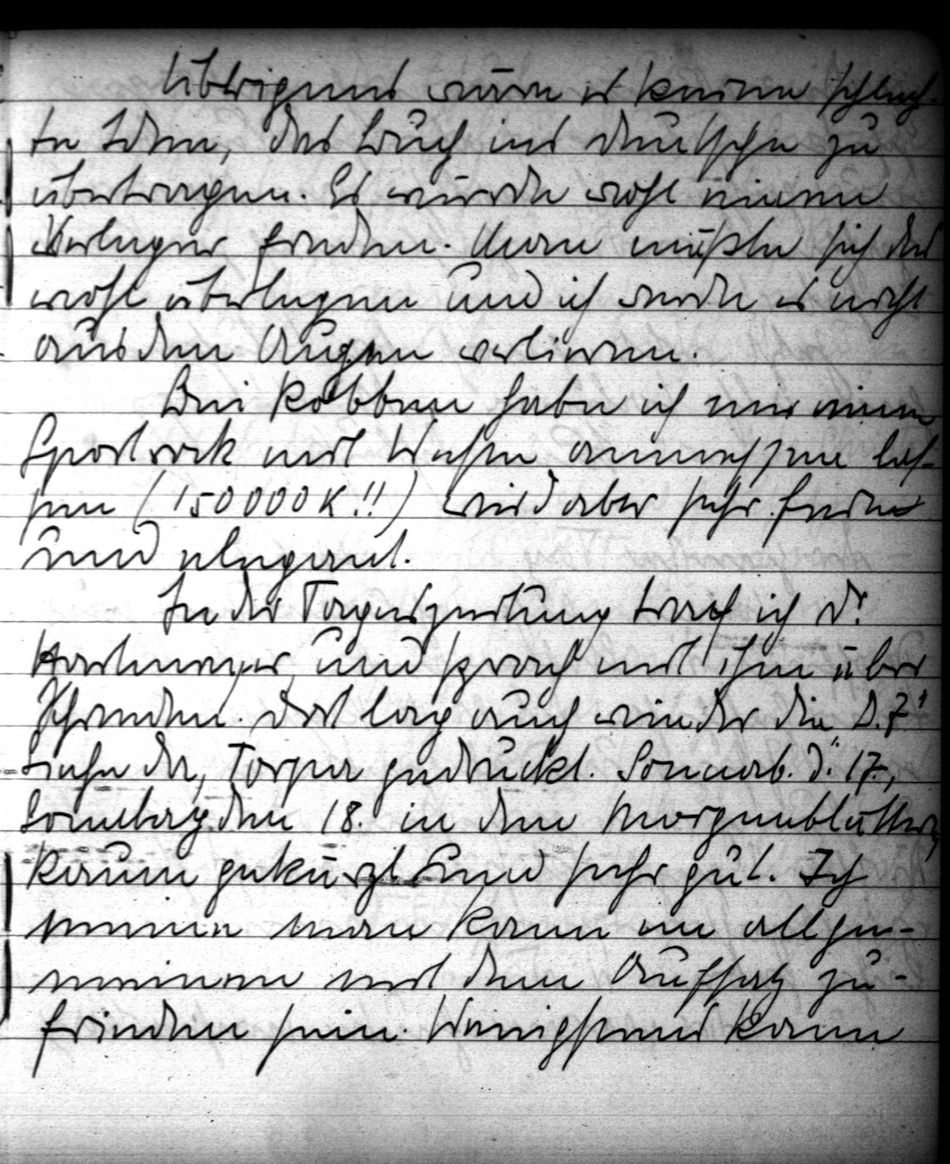 Übrigens wäre es keine schlech-
te Idee, das Buch ins deutsche zu
übertragen. Es würde wohl einen
Verleger finden. Man müßte sich das
wohl überlegen und ich werde es nicht
aus den Augen verlieren.
Bei Robben habe ich mir einen
Sportrock mit Weste anmessen las-
sen (150000K!!) wird aber sehr fein
und elegant.
In der Tageszeitung traf ich Dr.
Hartmeyer und sprach mit ihm über
. Dort lag auch wieder die D.Z.
gedruckt. Sonnab. d. 17.,
Sonntag den 18. in den Morgenblättern,
kaum gekürzt und sehr gut. Ich
meine man kann im allge-
meinen mit dem Aufsatz zu-
frieden sein. Wenigstens kann